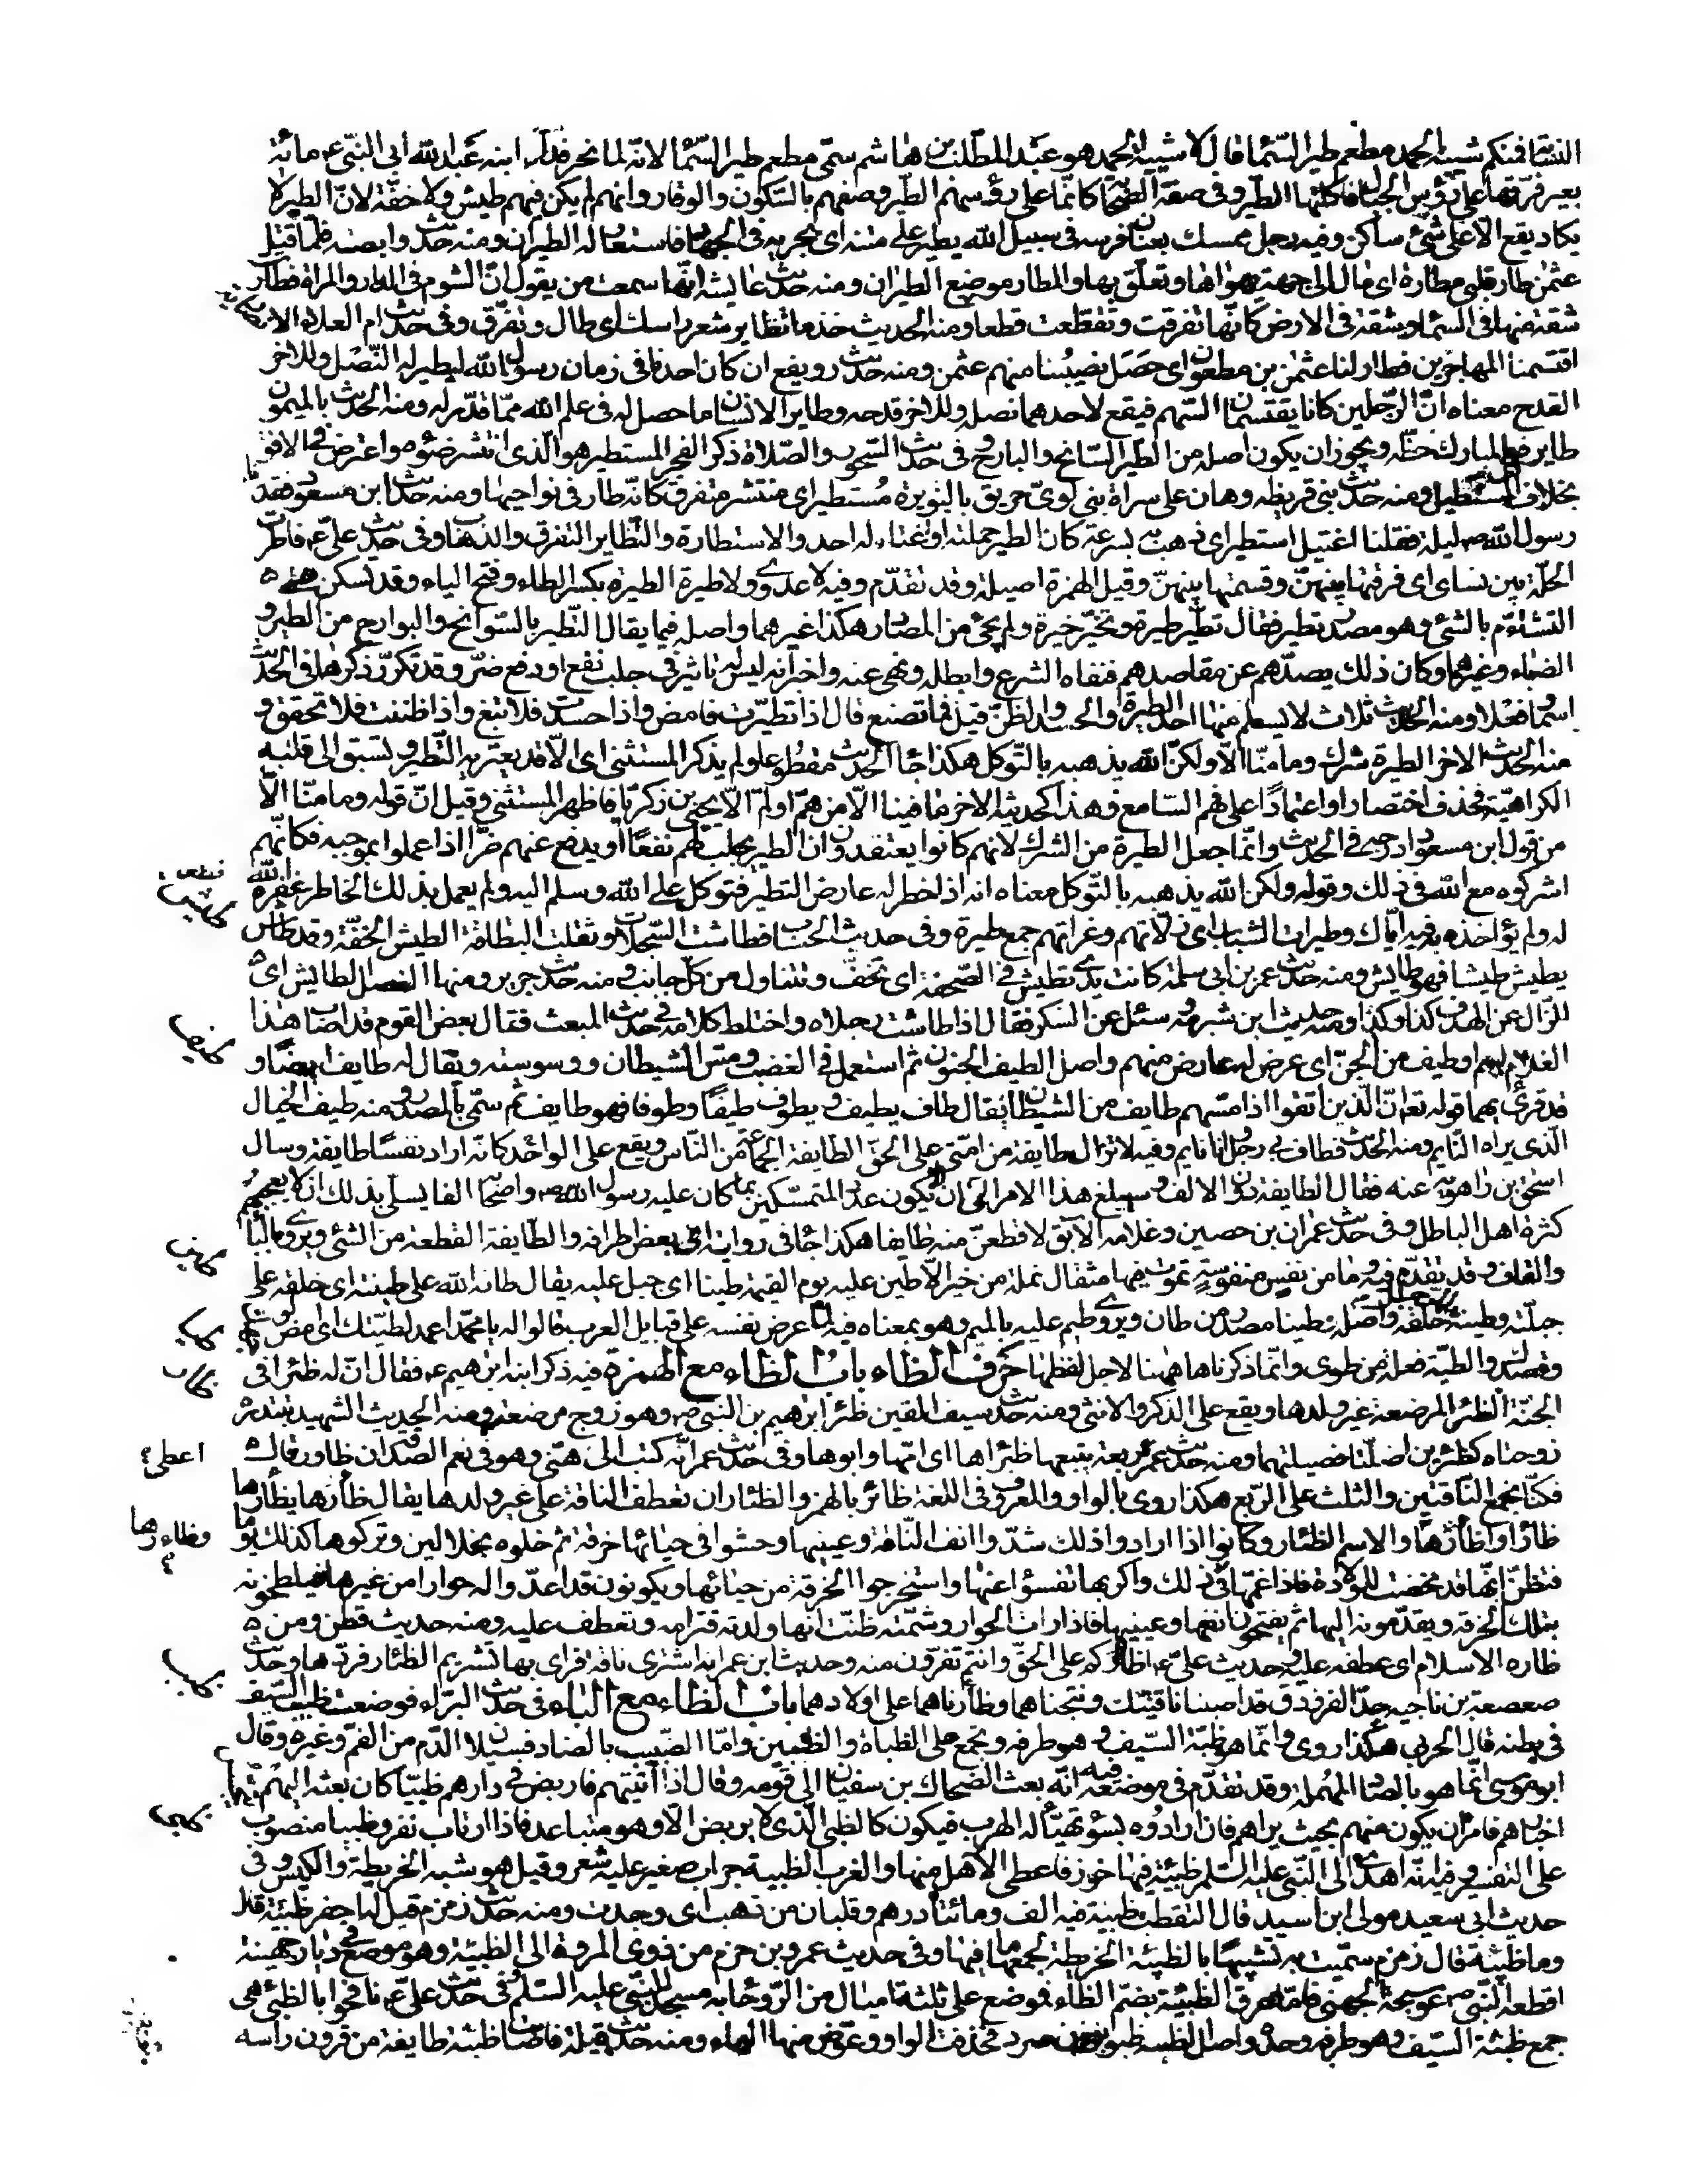 النسابة افمنكم شيبة الحمد مطعم طير السما قال لا شيبة الحمد هو عبد المطلب بن هاشم سمى مطعم طير السما لانه لما نحر فداء ابنه عبد الله ابى النبى ع مائة
بعير فرقها على رؤس الجبال فاكلتها الطير وفى صفة الصحابة كانما على رؤسهم الطير وصفهم بالسكون والوقار وانهم لم يكن فيهم طيش ولا خفة لان الطير لا
يكاد يقع الا على شئ ساكن وفيه رجل ممسك بعنان فرسه فى سبيل الله يطير على متنه اى يجريه فى الجهاد فاستعار له الطيران ومنه حديث وابصة فلما قتل
عثمن طار قلبى مطاره اى مال الى جهة يهواها وتعلق بها والمطار موضع الطيران ومنه حديث عايشة انها سمعت من يقول ان الشوم فى الدار والمراة فطارت
شقة منها فى السما وشقة فى الارض كانها تفرقت وتقطعت قطعا ومنه الحديث خذ ما تطاير من شعر راسك اى طال وتفرق وفى حديث ام العلاء الانصارية
اقتسمنا المهاجرين فطار لنا عثمن بن مظعون اى حصل نصيبنا منهم عثمن ومنه حديث رويفع ان كان احدنا فى زمان رسول الله ليطير له النصل وللاخر
القدح معناه ان الرجلين كانا يقتسمان السهم فيقع لاحدهما نصله وللاخر قدحه وطاير الانسان ما حصل له فى علم الله مما قدر له ومنه الحديث بالميمون
طايره اى المبارك حظه ويجوز ان يكون اصله من الطير السانح والبارح وفى حديث السحور والصلاة ذكر الفجر المستطير هو الذى انتشر ضوءه واعترض فى الافق
بخلاف المستطيل ومنه حديث بنى قريظه وهان على سراة بنى لوى حريق بالبويرة مستطير اى منتشر متفرق كانه طار فى نواحيها ومنه حديث ابن مسعود فقدنا
رسول الله ص ليلة فقلنا اغتيل استطير اى ذهب به بسرعة كان الطير حملته او اغتاله احد والاستطارة والتطاير التفرق والذهاب وفى حديث على ع فاطرت
الحلة بين نساى اى فرقتها بينهن وقسمتها بينهن وقيل الهمزة اصيلة وقد تقدم وفيه لا عدوى ولا طيرة الطيرة بكسر الطاء وفتح الياء وقد تسكن هى
التشئوم بالشئ وهو مصدر تطير يقال تطير طيرة وتخير خيرة ولم يجئ من المصادر هكذا غيرهما واصله فيما يقال التطير بالسوانح والبوارح من الطير و
الضباء وغيرهما وكان ذلك يصدهم عن مقاصدهم فنفاه الشرع وابطله ونهى عنه واخبر انه ليس له تاثير فى جلب نفع او دفع ضر وقد تكرر ذكرها فى الحديث
اسما وفعلا ومنه الحديث ثلاث لا يسلم منها احد الطيرة والحسد والظن قيل فما تصنع قال اذا تطيرت فامض واذا حسدت فلا تبغ واذا ظننت فلا تحقق و
منه الحديث الاخر الطيرة شرك وما منا الا ولكن الله يذهبه بالتوكل هكذا جا الحديث مقطوعا ولم يذكر المستثنى اى الا قد يعتريه التطير ويسبق الى قلبه
الكراهية فحذف اختصارا واعتمادا على فهم السامع وهذا كحديثه الاخر ما فينا الا من هم او لم الا يحيى بن زكريا فاظهر المستثنى وقيل ان قوله وما منا الا
من قول ابن مسعود ادرجه فى الحديث وانما جعل الطيرة من الشرك لانهم كانوا يعتقدون ان الطير يجلب لهم نفعا او يدفع عنهم ضرا اذا عملوا بموجبه فكانهم
اشركوه مع الله فى ذلك وقوله ولكن الله يذهبه بالتوكل معناه انه اذا خطر له عارض التطير فتوكل على الله وسلم اليه ولم يعمل بذلك الخاطر غفره الله
له ولم يؤاخذه به فيه اياك وطيرات الشباب اى زلاتهم وغراتهم جمع طيرة وفى حديث الحساب فطاشت السجلات وثقلت البطاقة الطيش الخفة وقد طاش
يطيش طيشا فهو طايش ومنه حديث عمر بن ابى سلمة كانت يدى تطيش فى الصحفة اى تخف وتتناول من كل جانب ومنه حديث جرير ومنها العصل الطايش اى
الزال عن الهدف كذا وكذا ومنه حديث ابن شبرمه سئل عن السكر فقال اذا طاشت رجلاه واختلط كلامه فى حديث المبعث فقال بعض القوم قد اصاب هذا
الغلام لمم او طيف من الجن اى عرض له عارض منهم واصل الطيف الجنون ثم استعمل فى الغضب ومس الشيطان ووسوسته ويقال له طايف ايضا و
قد قرئ بهما قوله تعا ان الذين اتقوا اذا مسهم طايف من الشيطان يقال طاف يطيف ويطوف طيفا وطوفا فهو طايف ثم سمى بالمصدر ومنه طيف الخيال
الذى يراه النايم ومنه الحديث فطاف بى رجل وانا نايم وفيه لا تزال طايفة من امتى على الحق الطايفة الجماعة من الناس ويقع على الواحد كانه اراد نفسا طايفة وسال
اسحق بن راهويه عنه فقال الطايفة دون الالف وسيبلغ هذا الامر الى ان يكون عدد المتمسكين بما كان عليه رسول الله ص واصحابه الفا يسلى بذلك ان لا يعجبهم
كثرة اهل الباطل وفى حديث عمران بن حصين وغلامه الآبق لاقطعن منه طايفا هكذا جا فى رواية اى بعض اطرافه والطايفة القطعة من الشئ ويروى بالباء
والقاف وقد تقدم فيه وما من نفس منفوسة تموت فيها مثقال نملة من خير الا طين عليه يوم القيمة طينا اى جبل عليه يقال طانه الله على طينته اى خلقه على
جبلته وطينة الرجل خلقه واصله وطينا مصدر من طان ويروى طيم عليه بالميم وهو بمعناه فيه لما عرض نفسه على قبايل العرب قالوا له يا محمد اعمد لطيتك اى امض لوجهك
وقصدك والطية فعلة من طوى وانما ذكرناها ههنا لاجل لفظها حرف الظاء باب الظاء مع الهمزة فيه ذكر ابنه ابرهيم ع فقال ان له ظئرا فى
الجنة الظئر المرضعة غير ولدها ويقع على الذكر والانثى ومنه حديث سيف القين ظئر ابرهيم بن النبى ص وهو زوج مرضعته ومنه الحديث الشهيد تبتدره
زوجتاه كظئرين اضلتا فصيلتيهما ومنه حديث عمر ربعة يتبعها ظئراها اى امها وابوها وفى حديث عمر انه كتب الى هنى وهو فى نعم الصدقة ان ظاور قال
فكنا نجمع الناقتين والثلث على الربع هكذا روى بالواو والمعروف فى اللغة ظائر بالهمز والظئار ان تعطف الناقة على غير ولدها يقال ظأرها يظأرها
ظأرا واظأرها والاسم الظئار وكانوا اذا ارادوا ذلك شدوا انف الناقة وعينيها وحشوا فى حيائها خرقة ثم خلوه بخلالين وتركوها كذلك يوما
فتظن انها قد مخضت للولادة فاذا غمها ذلك واكربها نفسوا عنها واستخرجوا الخرقة من حيائها ويكونون قد اعدوا له حوارا من غيرها فيلطخونه
بتلك الخرقة ويقدمونه اليها ثم يفتحون انفها وعينيها فاذا رات الحوار وشمته ظنت انها ولدته فترامه وتعطف عليه ومنه حديث قطن ومن
ظاره الاسلام اى عطفه عليه وحديث على ع اظاركم على الحق وانتم تفرون منه وحديث ابن عمر انه اشترى ناقة فراى بها تشريم الظئار فردها وحديث
صعصعة بن ناجيه جد الفرزدق قد اصبنا ناقتيك ونتجناهما وظأرناهما على اولادهما باب الظاء مع الباء فى حديث البراء فوضعت ظبيب السيف
فى بطنه قال الحربى هكذا روى وانما هو ظبة السيف وهو طرفه ويجمع على الظباة والظبين واما الضبيب بالضاد فسيلان الدم من الفم وغيره وقال
ابو موسى انما هو بالصاد المهملة وقد تقدم فى موضعه فيه انه بعث الضحاك بن سفيان الى قومه وقال اذا اتيتهم فاربض فى دارهم ظبيا كان بعثه اليهم يتجسس
اخبارهم فامره ان يكون منهم بحيث يراهم فان ارادوه بسوء تهيأ له الهرب فيكون كالظبى الذى لا يربض الا وهو متباعد فاذا ارتاب نفر وظبيا منصوب
على التفسير وفيه انه اهدى الى النبى عليه السلم ظبية فيها خرز فاعطى الآهل منها والعزب الظبية جراب صغير عليه شعر وقيل هو شبه الخريطة والكيس وفى
حديث ابى سعيد مولى ابن اسيد قال التقطت ظبية فيه الف ومائتا درهم وقلبان من ذهب اى وجدت ومنه حديث زمزم قيل له احفر ظبية قال
وما ظبية قال زمزم سميت به تشبيها بالظبية الخريطة لجمعها ما فيها وفى حديث عمرو بن حزم من ذوى المروة الى الظبية وهو موضع فى ديار جهينة
اقطعه النبى ص عوسجة الجهنى فاما عرق الظبية بضم الظاء فموضع على ثلثة اميال من الروحا به مسجد للنبى عليه السلم وفى حديث على ع نافحوا بالظبى هى
جمع ظبة السيف وهو طرفه وحده واصل الظبة ظبو بوزن صرد فحذفت الواو وعوض منها الهاء ومنه حديث قيلة فاصابت ظبته طايفة من قرون راسه